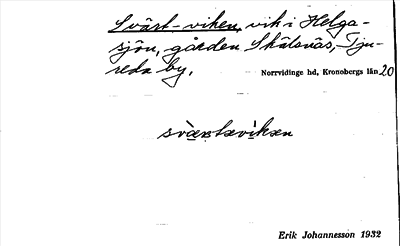 Svärt-viken, vik i Helga-
sjön, gården Skälsnäs, Tju-
reda by.
Norrvidinge hd, Kronobergs län 20
svæ̀ṣṭavìkən
Erik Johannesson 1932